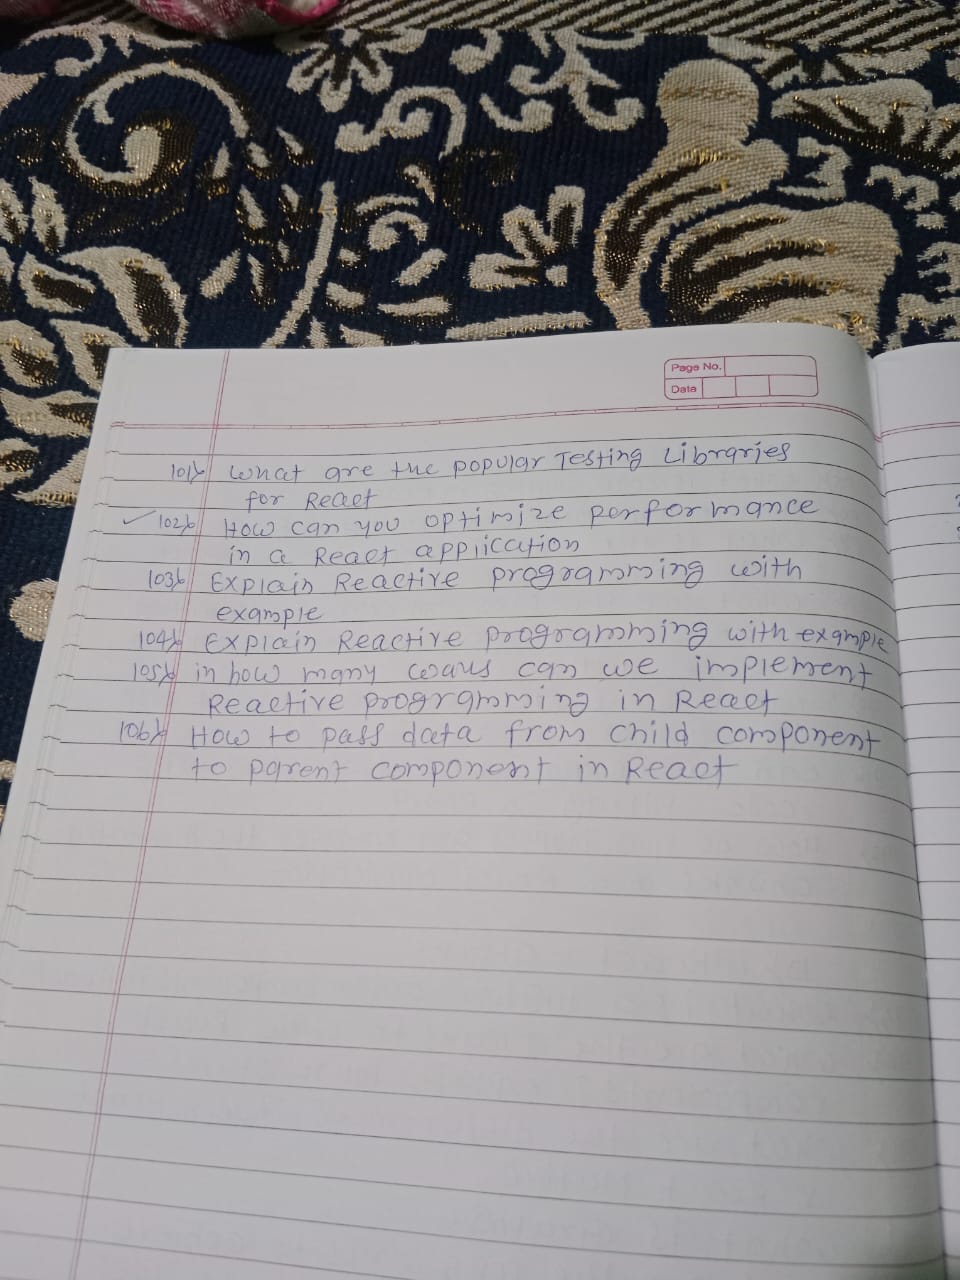 Page No.
Date
101) What are the popular Testing Libraries
for React
102) How can you optimize performance
in a React application
103) Explain Reactive programming with
example
104) Explain Reactive programming with example
105) in how many ways can we implement
Reactive programming in React
106) How to pass data from child component
to parent component in React